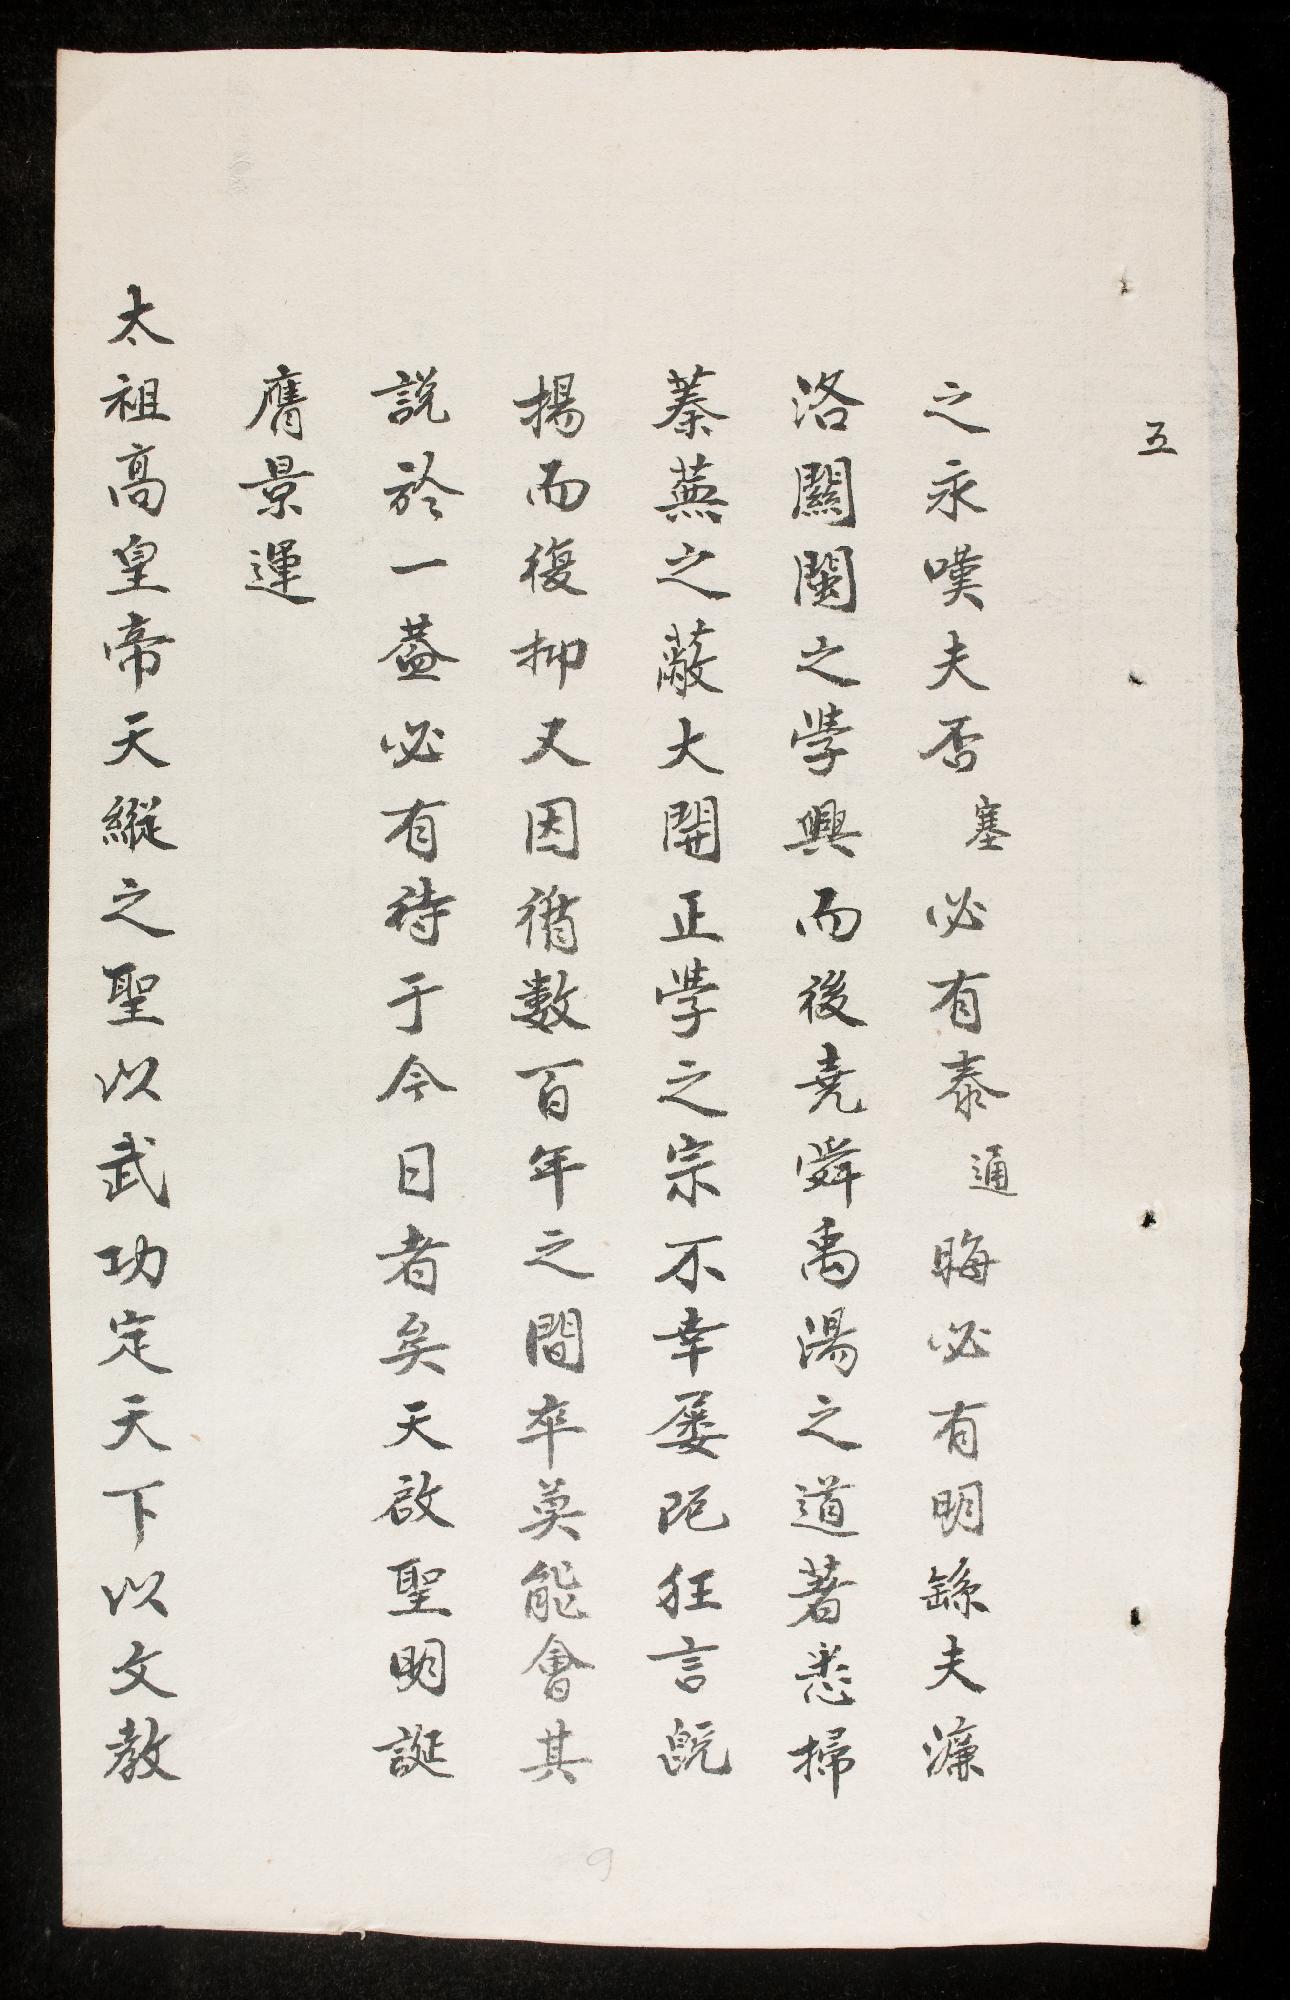 五
之永嘆夫否塞必有泰通晦必有明繇夫濂
洛關閩之學興而後堯舜禹湯之道著悉掃
蓁蕪之蔽大開正學之宗不幸屢阨狂言旣
揚而復抑又因循數百年之間卒莫能會其
說於一葢必有待于今日者矣天啟聖明誕
膺景運
太祖高皇帝天縱之聖以武功定天下以文教
9